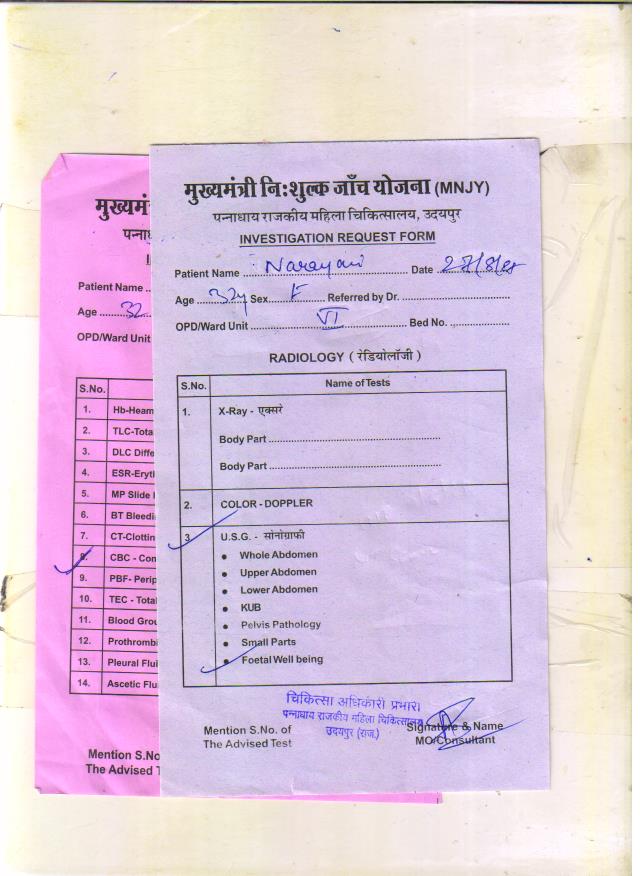 मुख्यमंत्री निःशुल्क जाँच योजना (MNJY)
पन्नाधाय राजकीय महिला चिकित्सालय, उदयपुर
INVESTIGATION REQUEST FORM
Patient Name Narayani Date
Age 32y Sex F Referred by Dr.
OPD/Ward Unit VI Bed No.
RADIOLOGY ( रेडियोलॉजी )
S.No. Name of Tests
1. X-Ray - एक्सरे
Body Part
Body Part
2. COLOR - DOPPLER
3. U.S.G. - सोनोग्राफी
Whole Abdomen
Upper Abdomen
Lower Abdomen
KUB
Pelvis Pathology
Small Parts
Foetal Well being
चिकित्सा अधिकारी प्रभारी
पन्नाधाय राजकीय महिला चिकित्सालय
उदयपुर (राज.)
Mention S.No. of
The Advised Test
Signature & Name
MO/Consultant
मुख्यमं
पन्ना
Patient Name
Age 32
OPD/Ward Unit
S.No.
1. Hb-Heam
2. TLC-Tota
3. DLC Diffe
4. ESR-Eryt
5. MP Slide
6. BT Bleedi
7. CT-Clottin
8. CBC - Con
9. PBF- Perip
10. TEC - Tota
11. Blood Grou
12. Prothrombi
13. Pleural Flui
14. Ascetic Flu
Mention S.No
The Advised T